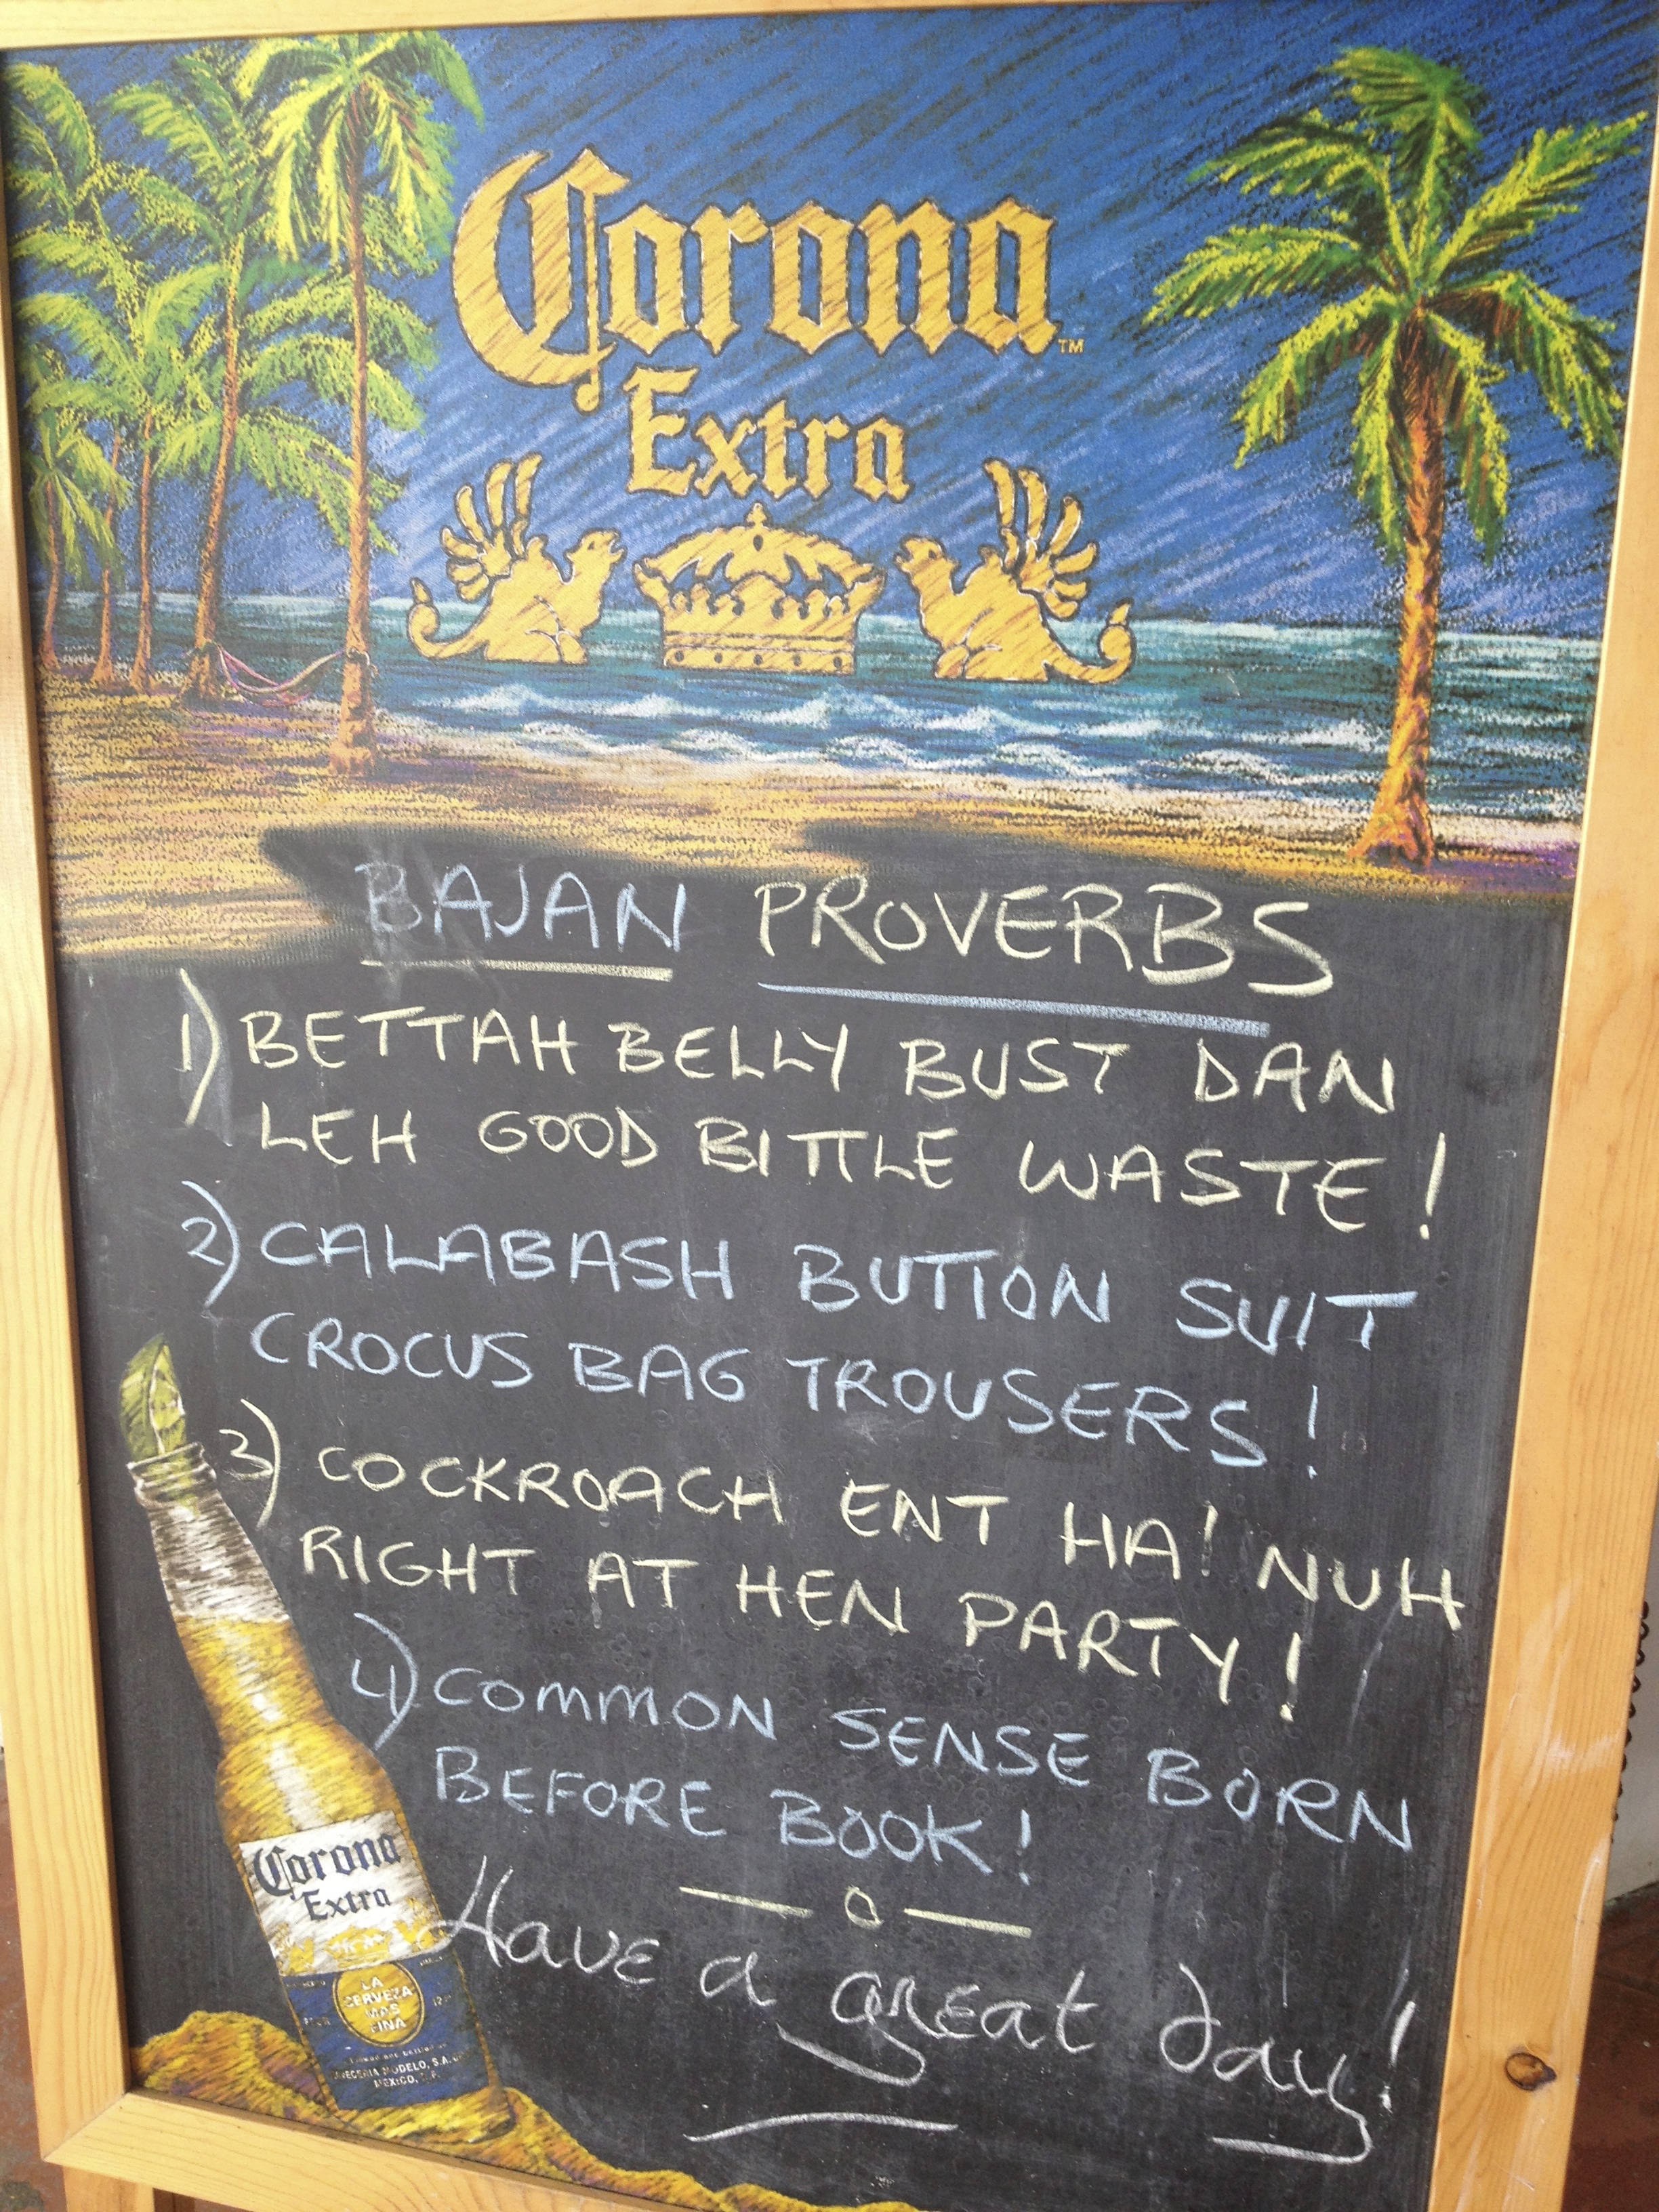 Corona™
Extra
BAJAN PROVERBS
1) BETTAH BELLY BUST DAN
LEH GOOD BITTLE WASTE!
2) CALABASH BUTTON SUIT
CROCUS BAG TROUSERS!
3) COCKROACH ENT HA' NUH
RIGHT AT HEN PARTY!
4) COMMON SENSE BORN
BEFORE BOOK!
Have a great day!
Corona
Extra
LA
CERVEZA
MAS
FINA
MODELO, S.A.
MEXICO,